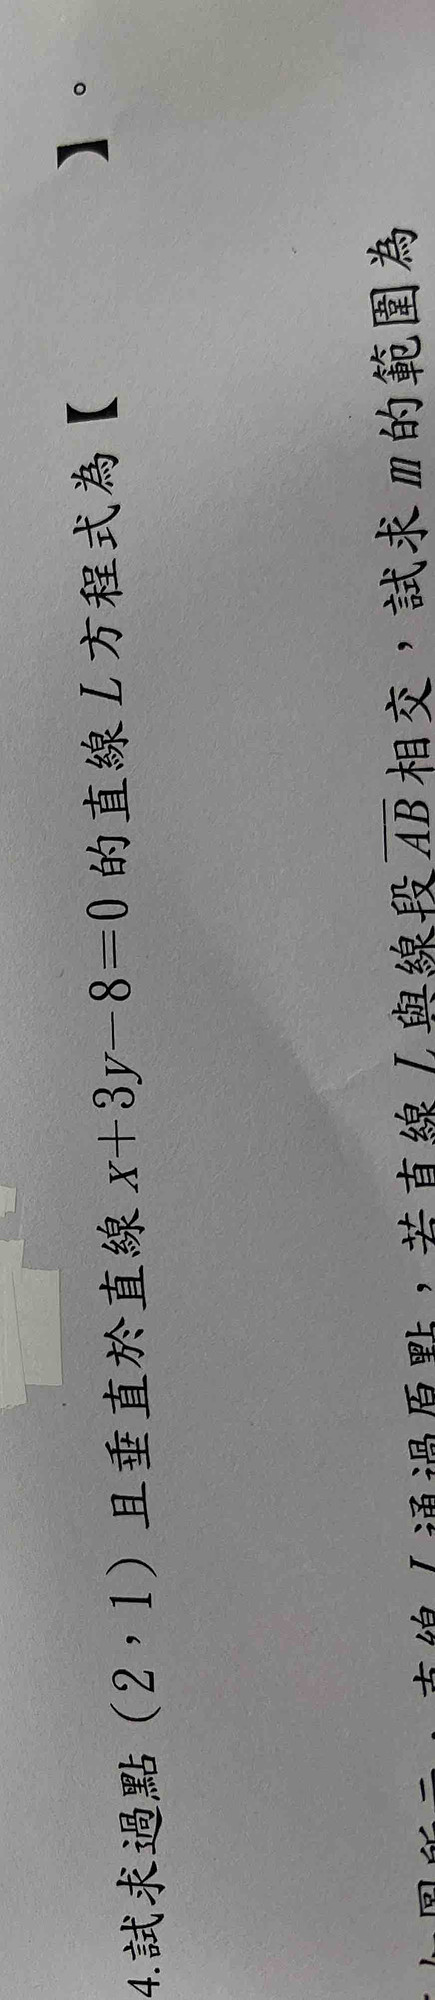 4.試求過點(2,1)且垂直於直線x+3y-8=0的直線L方程式為【 】。
直線L通過原點,若直線L與線段AB相交,試求m的範圍為